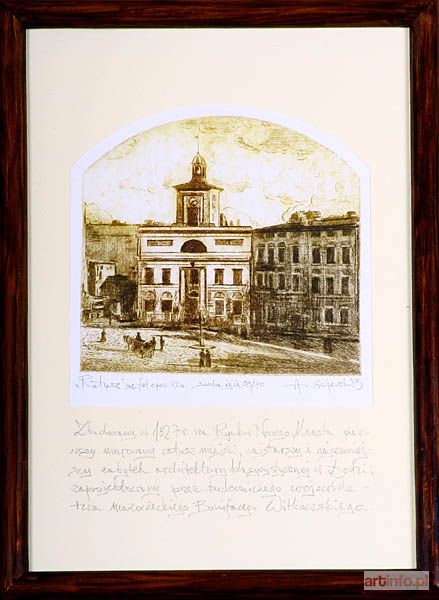 "Ratusz" 59/70 A.
Zbudowany w 1827 r. na Rynku Nowego Miasta pier-
wszy murowany ratusz miejski, najstarszy i najcenniej-
szy zabytek architektury klasycystycznej w Łodzi,
zaprojektowany przez budowniczego wojewódz-
twa mazowieckiego Bonifacego Witkowskiego.
artinfo.pl